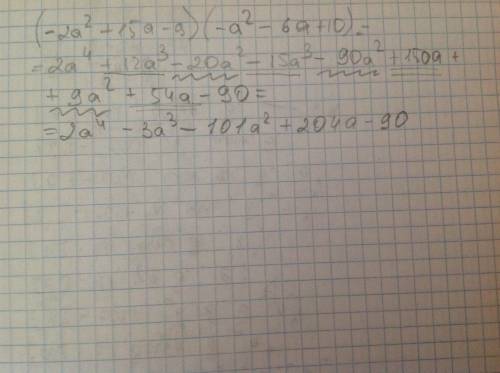 (-2a² + 15a - 9)(-a² - 6a + 10) =
= 2a⁴ + 12a³ - 20a² - 15a³ - 90a² + 150a +
+ 9a² + 54a - 90 =
= 2a⁴ - 3a³ - 101a² + 204a - 90